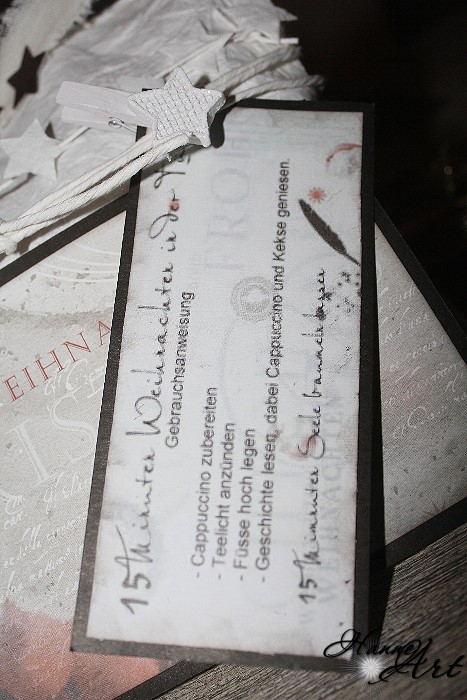 15 Minuten Weihnachten in der
Gebrauchsanweisung
- Cappuccino zubereiten
- Teelicht anzünden
- Füsse hoch legen
- Geschichte lesen, dabei Cappuccino und Kekse geniesen.
15 Minunten Seele baumeln lassen
EIHNA
Hanne
Art